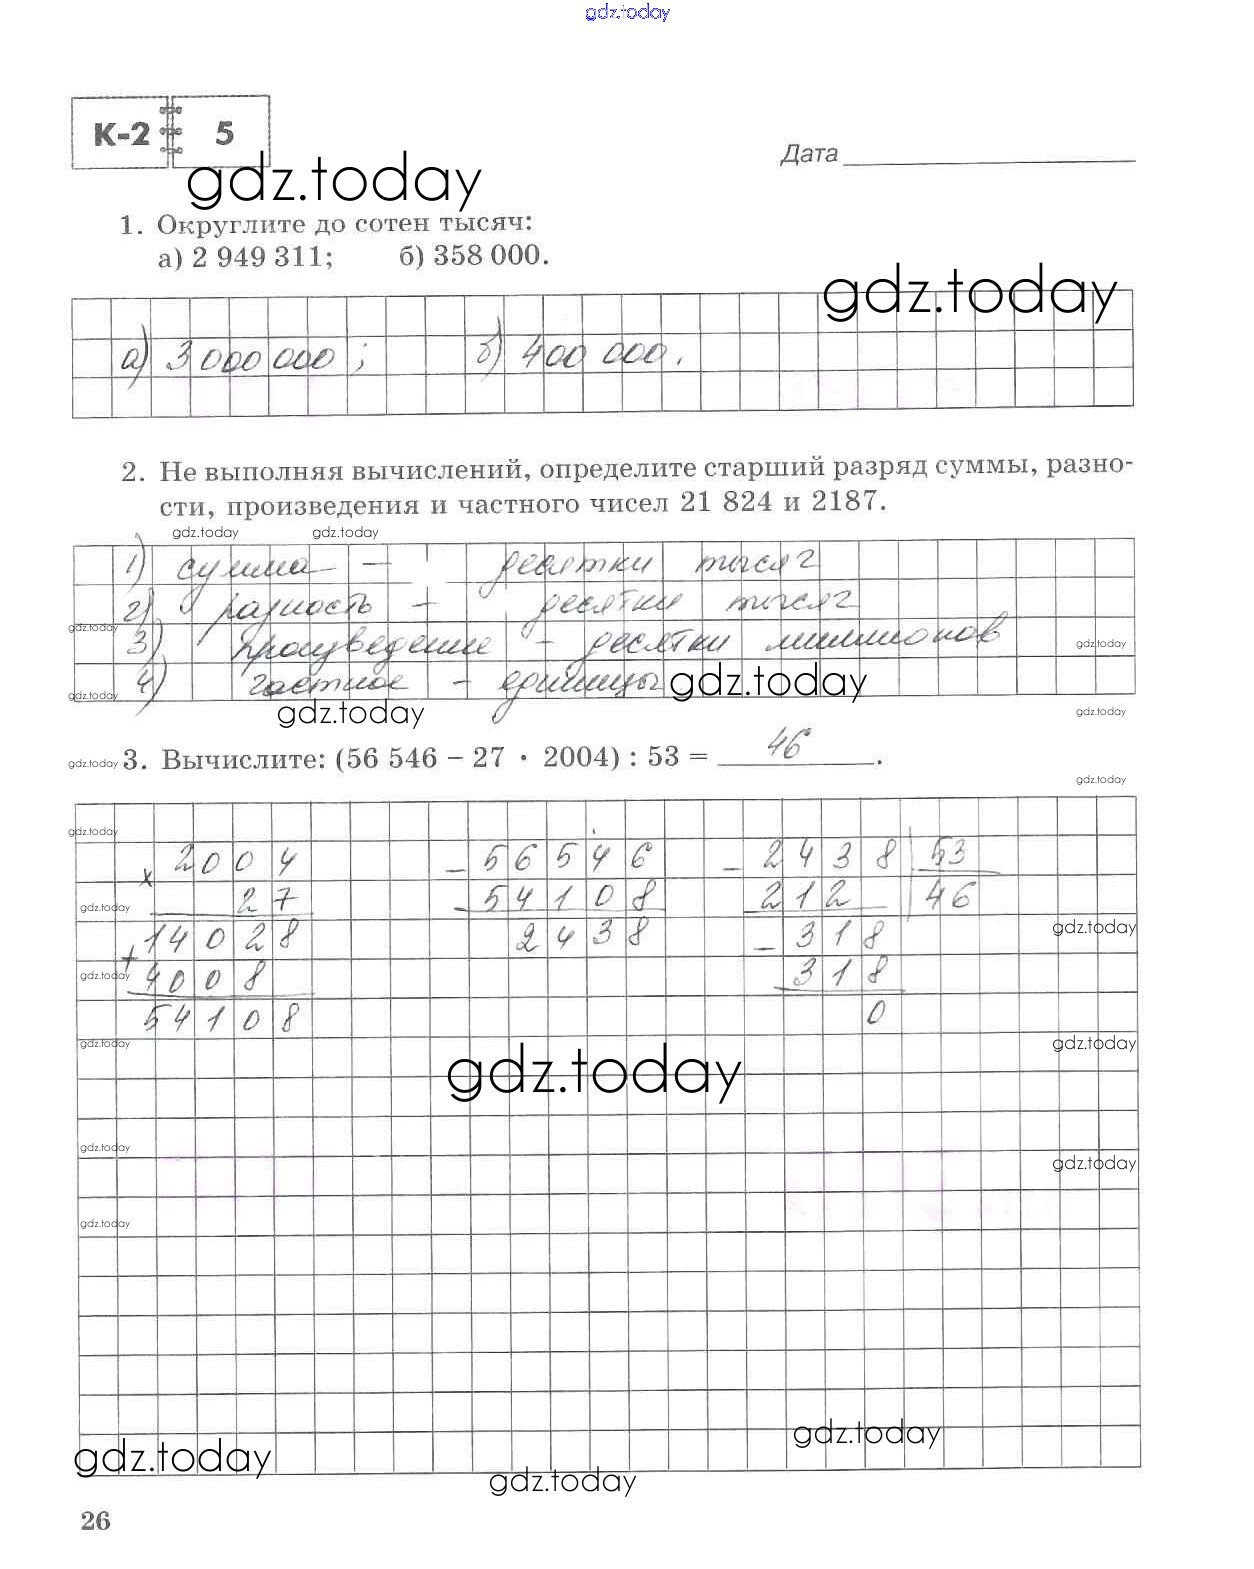 gdz.today
К-2 5
Дата
gdz.today
1. Округлите до сотен тысяч:
а) 2 949 311; б) 358 000.
gdz.today
а) 3 000 000 ; б) 400 000.
2. Не выполняя вычислений, определите старший разряд суммы, разно-
сти, произведения и частного чисел 21 824 и 2187.
gdz.today gdz.today
1) сумма — десятки тысяч
2) разность — десятки тысяч
gdz.today
3) произведение – десятки миллионов
gdz.today
4) частное – единицы gdz.today
gdz.today
gdz.today gdz.today
gdz.today 3. Вычислите: (56 546 – 27 · 2004) : 53 = 46.
gdz.today
gdz.today
× 2004 – 56546 – 2438 53
27 54108 212 46
gdz.today
+ 14028 2438 – 318
gdz.today
4008 318
gdz.today
54108 0
gdz.today gdz.today
gdz.today
gdz.today
gdz.today
gdz.today
gdz.today
gdz.today
gdz.today
26